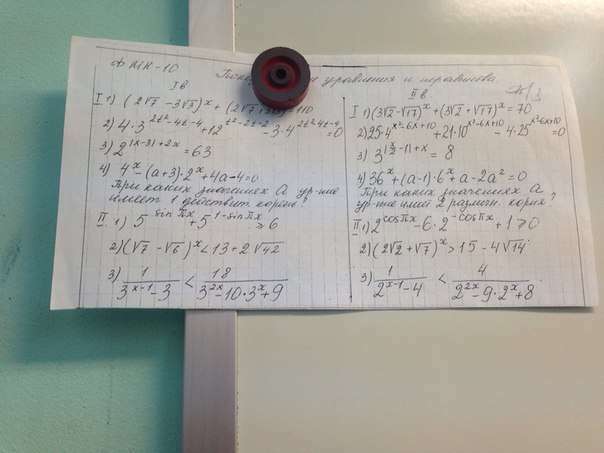 МК-10
уравнения и неравенства
I в
I 1) (2√7 - 3√3)ˣ + (2√7
2) 4·3^(2t²-4t-4) + 12^(t²-2t-2) - 3·4^(2t²-4t-4) = 0
3) 2^(|x-3|+2x) = 63
4) 4ˣ-(a+3)·2ˣ+4a-4=0
При каких значениях а ур-ние
имеет 1 действит. корень?
II. 1) 5^(sin πx) + 5^(1-sin πx) ≥ 6
2) (√7 - √6)ˣ < 13+2√42
3) 1/(3^(x-1)-3) < 18/(3^(2x)-10·3ˣ+9)
II в
I 1) (3√2-√17)ˣ + (3√2+√17)ˣ = 70
2) 25·4^(x²-6x+10) + 21·10^(x²-6x+10) - 4·25^(x²-6x+10) = 0
= 8
4) 36ˣ+(a-1)·6ˣ+a-2a²=0
При каких значениях а
ур-ние имеет 2 различн. корня?
II 1) 2^(cos πx) - 6·2^(-cos πx) + 1 > 0
2) (2√2+√7)ˣ > 15-4√14
3) 1/(2^(x-1)-4) < 4/(2^(2x)-9·2ˣ+8)